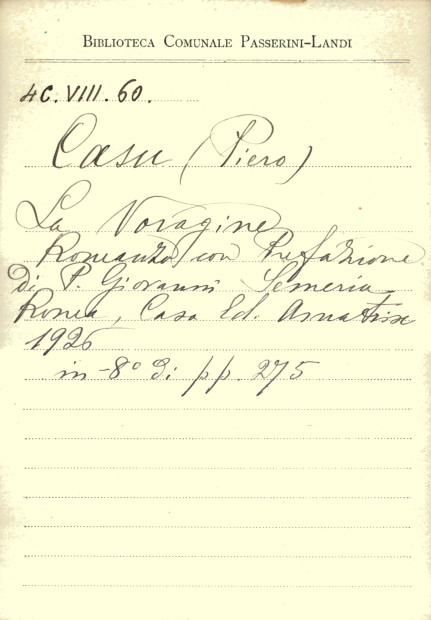 BIBLIOTECA COMUNALE PASSERINI-LANDI
4C. VIII. 60.
Casu (Piero)
La Voragine
Romanzo con Prefazione
di P. Giovanni Semeria
Roma, Casa Ed.
1926
in-8° di pp. 275